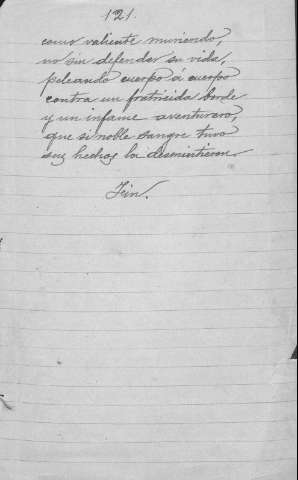 121.
como valiente muriendo,
no sin defender su vida,
peleando cuerpo á cuerpo
contra un fratricida borde
y un infame aventurero,
que si noble sangre tuvo
sus hechos la desmintieron.
Fin.